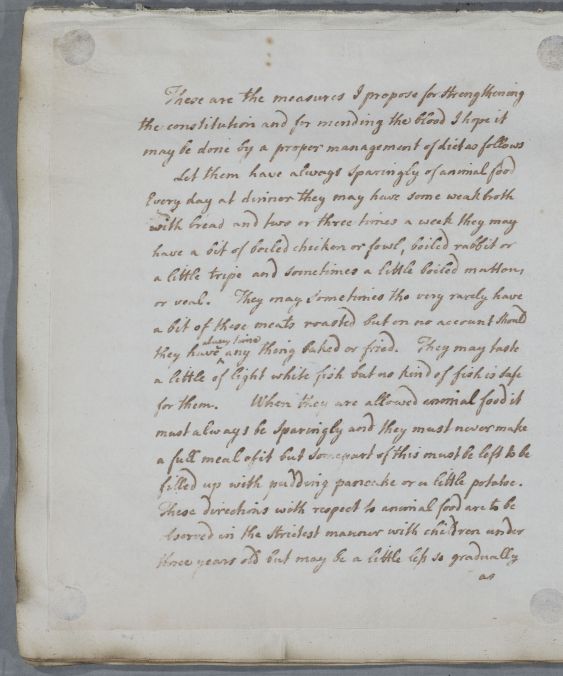 These are the measures I propose for strengthening
the constitution and for mending the blood I hope it
may be done by a proper management of diet as follows
Let them have always sparingly of animal food
Every day at dinner they may have some weak broth
with bread and two or three times a week they may
have a bit of boiled chicken or fowl, boiled rabbit or
a little tripe and sometimes a little boiled mutton,
or veal. They may sometimes tho very rarely have
a bit of these meats roasted but on no account should
they have at any time any thing baked or fried. They may taste
a little of light white fish but no kind of fish is safe
for them. When they are allowed animal food it
must always be sparingly and they must never make
a full meal of it but some part of this must be left to be
filled up with pudding pancake or a little potatoe.
These directions with respect to animal food are to be
observed in the strictest manner with children under
three years old but may be a little less so gradually
as